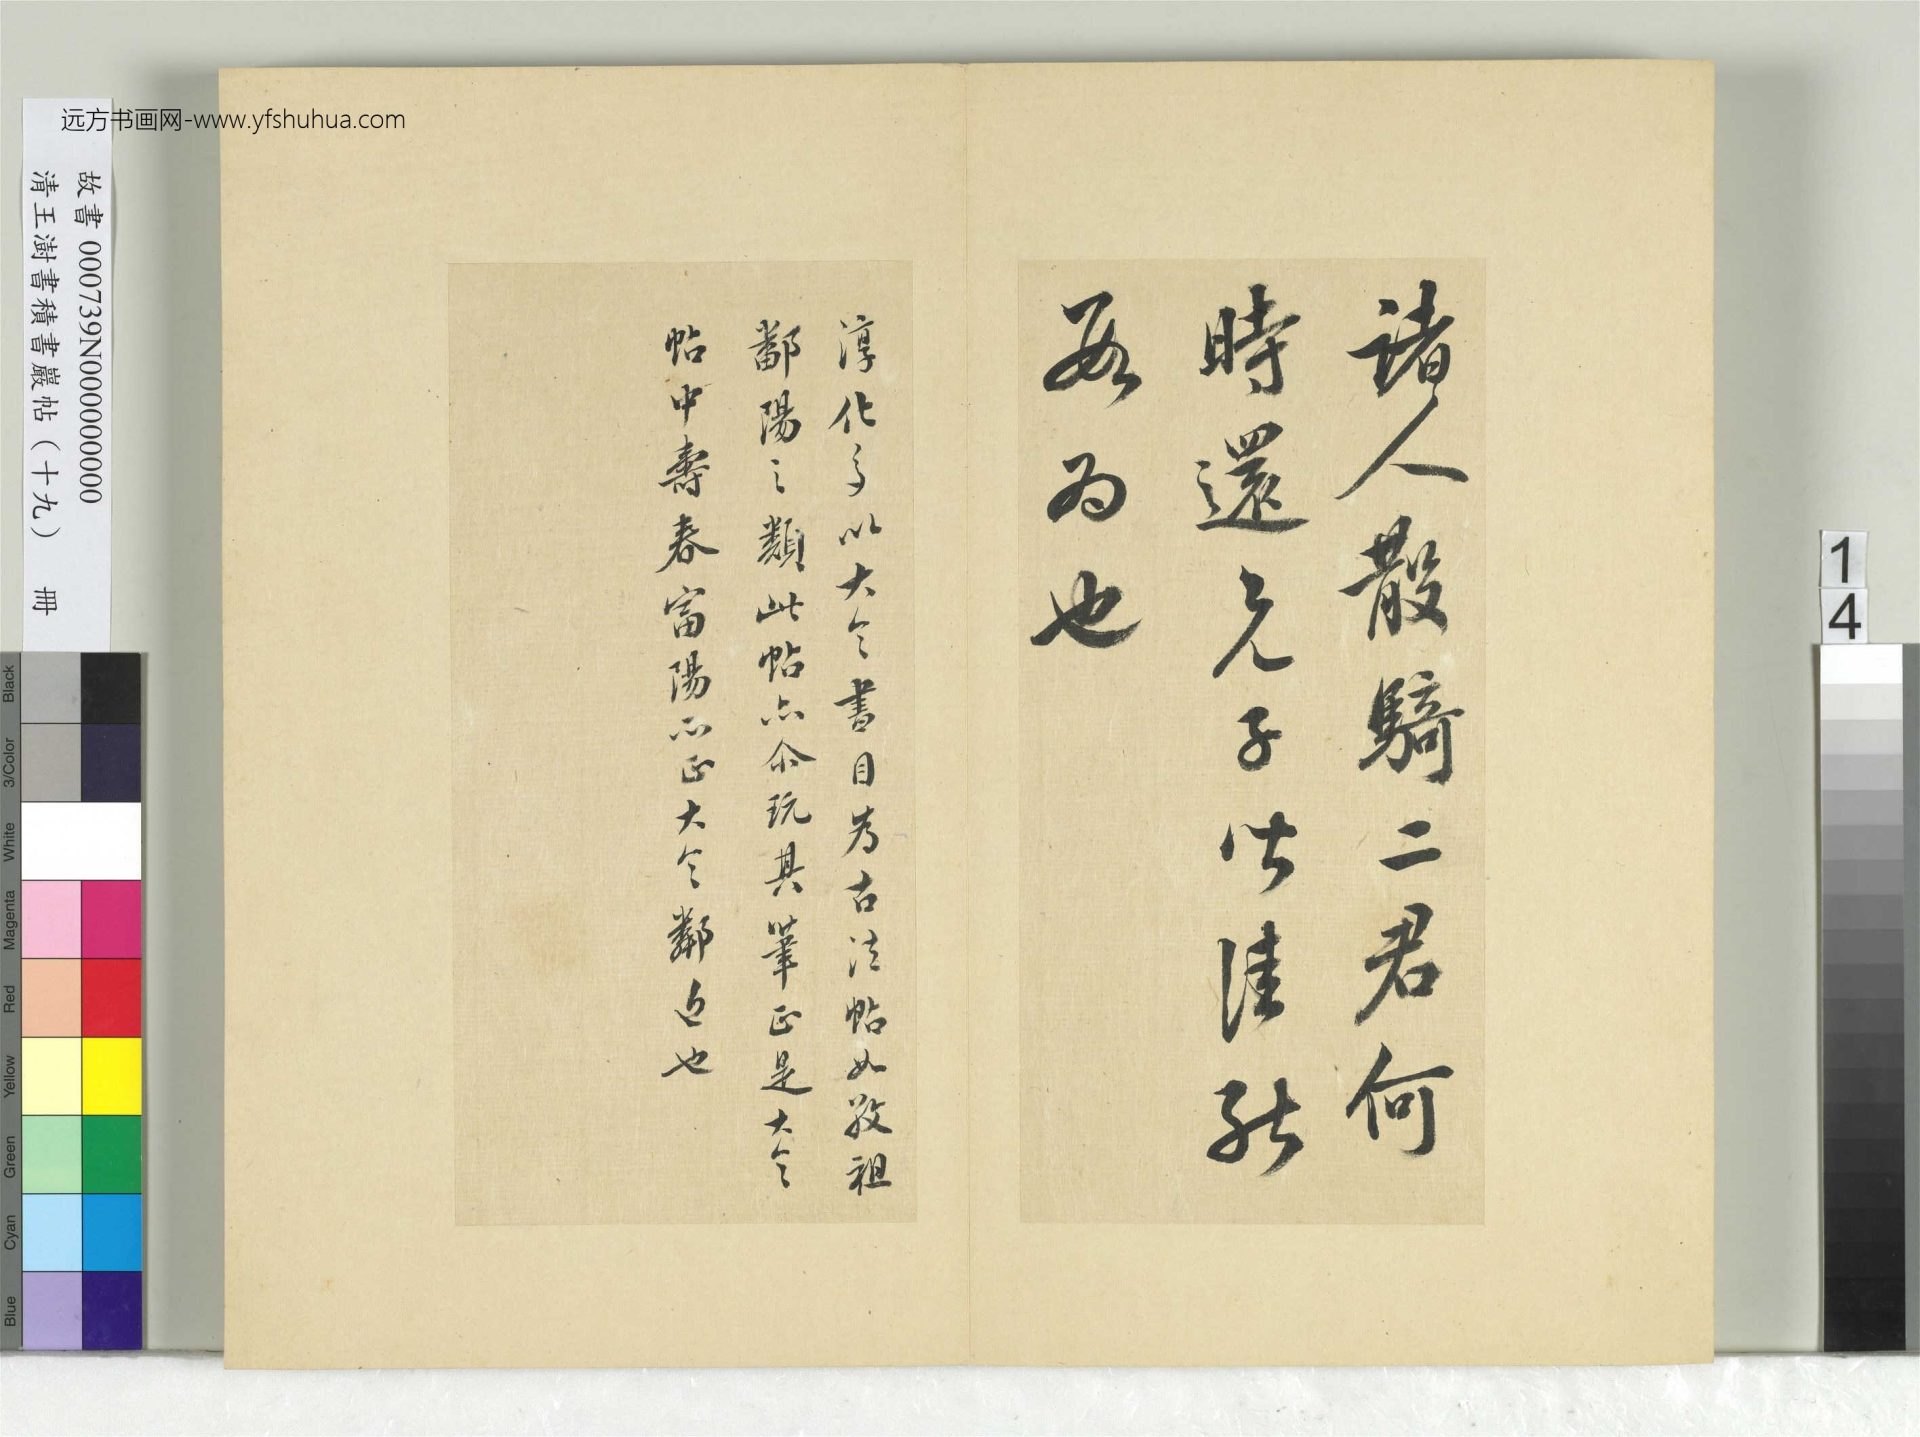 远方书画网-www.yfshuhua.com
故書 000739N000000000
清王澍書積書巖帖（十九） 冊
諸人散騎二君何
時還兄子皆佳
為也
淳化多以大令書目為古法帖如敬祖
鄱陽之類此帖亦尒玩其筆正是大令
帖中壽春富陽亦正大令鄰近也
14
Black
3/Color
White
Magenta
Red
Yellow
Green
Cyan
Blue